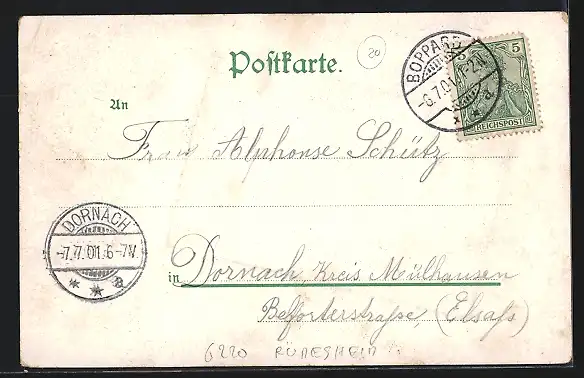 Postkarte.
20
BOPPARD
-6.7.01.1-2N.
* * a
5 5
REICHSPOST
An
Frau Alphonse Schütz
DORNACH
-7.7.01.6-7V.
* * a
in Dornach, Kreis Mülhausen
Belforterstraße, (Elsaß)
6220 RÜDESHEIM